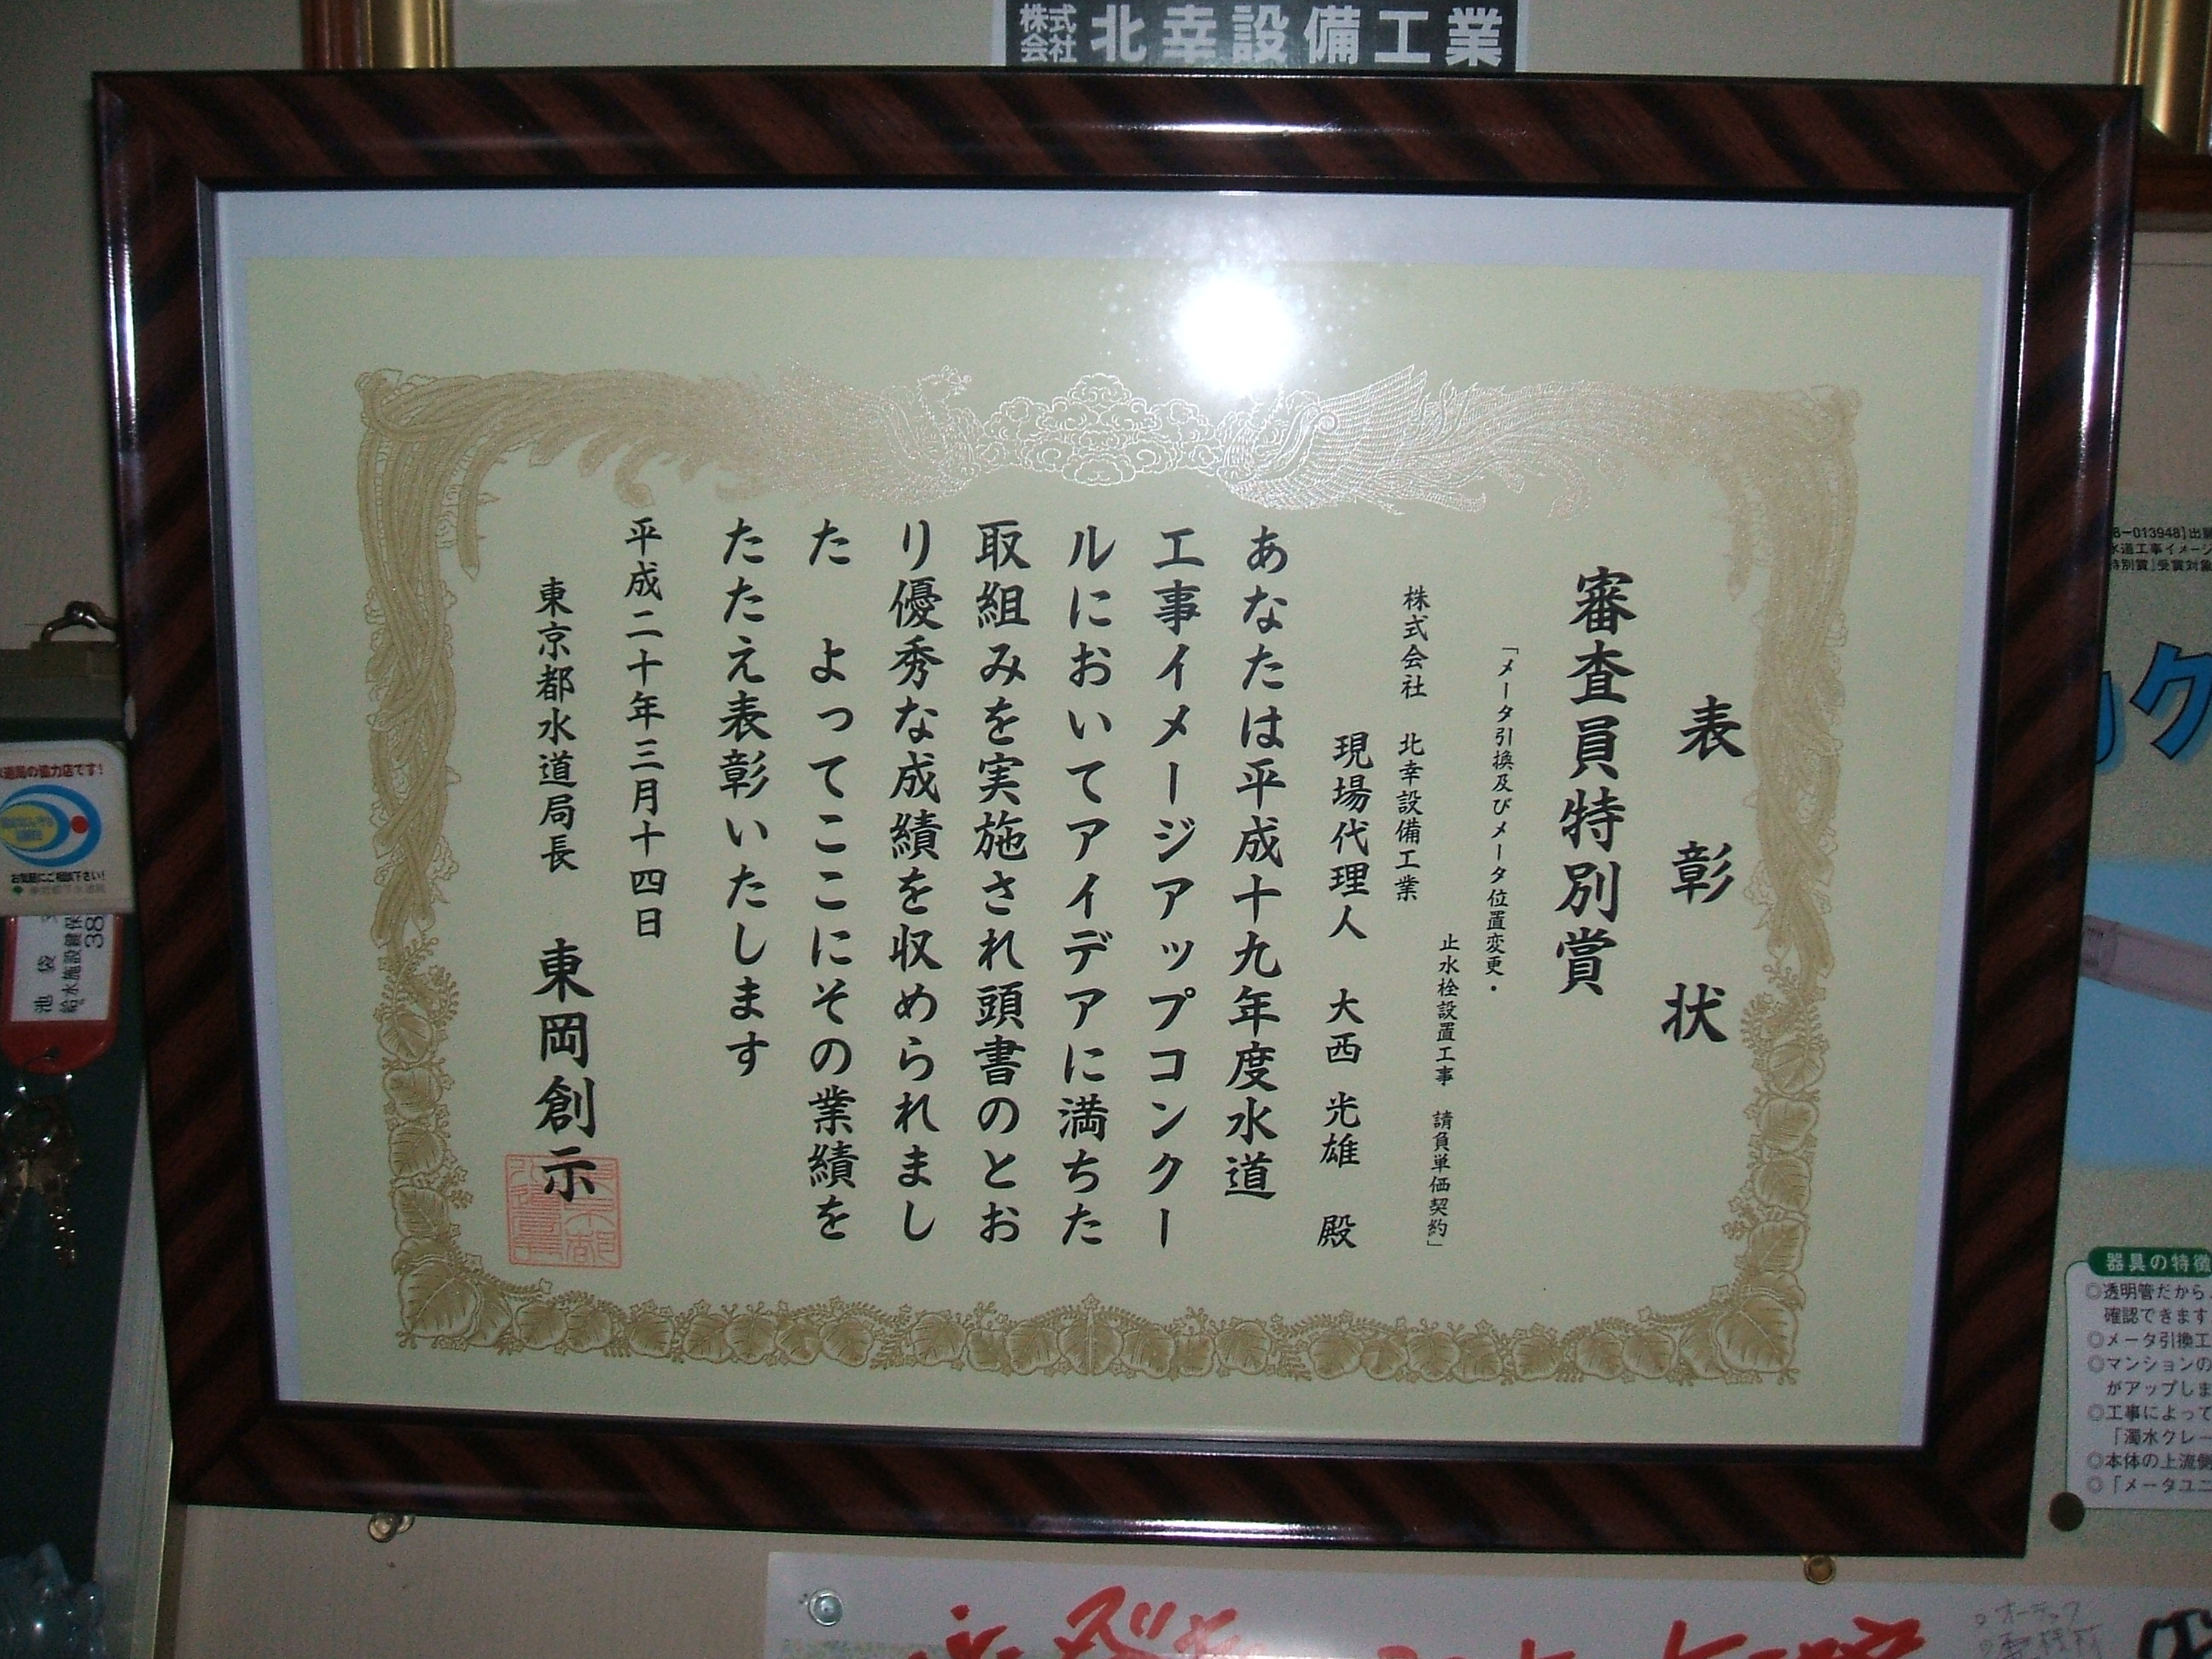 株式会社 北幸設備工業
表彰状
審査員特別賞
「メータ引換及びメータ位置変更・
止水栓設置工事 請負単価契約」
株式会社 北幸設備工業
現場代理人 大西 光雄 殿
あなたは平成十九年度水道
工事イメージアップコンクー
ルにおいてアイデアに満ちた
取組みを実施され頭書のとお
り優秀な成績を収められまし
た よってここにその業績を
たたえ表彰いたします
平成二十年三月十四日
東京都水道局長 東岡創示
8-013948]出願
水道工事イメージ
特別賞」受賞対象
ク
器具の特徴
◎透明管だから
確認できます
◎メータ引換工
◎マンションの
がアップしま
◎工事によって
「濁水クレー
◎本体の上流側
◎「メータユニ
水道局の協力店です!
お気軽にご相談下さい!
池袋
給水施設鍵保
38